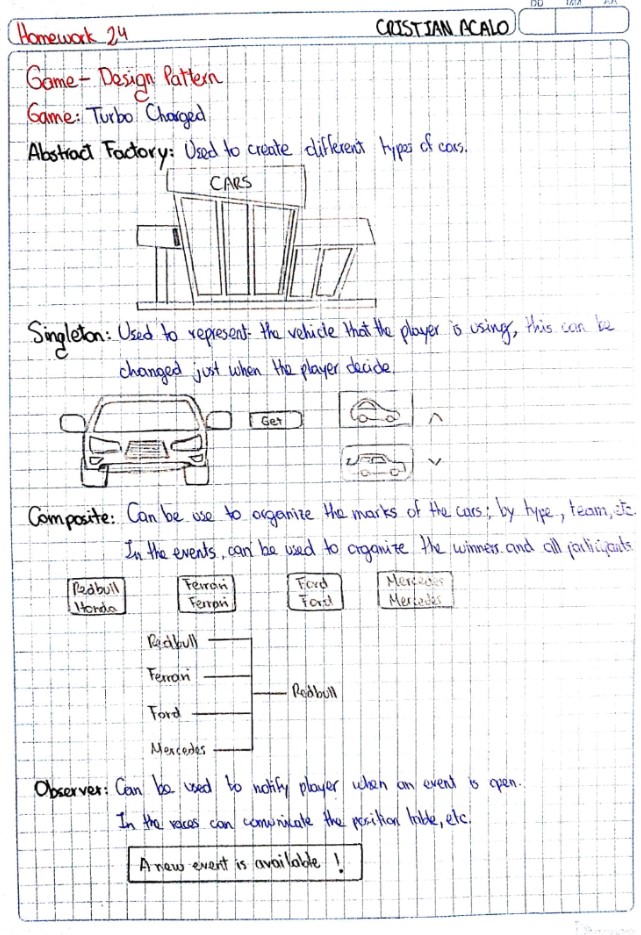 DD MM AA
Homework 24
CRISTIAN ACALO
Game - Design Pattern
Game: Turbo Charged
Abstract Factory: Used to create different types of cars.
CARS
Singleton: Used to represent the vehicle that the player is using, this can be
changed just when the player decide.
Get
Composite: Can be use to organize the marks of the cars; by type, team, etc.
In the events, can be used to organize the winners and all participants
Redbull
Honda
Ferrari
Ferrari
Ford
Ford
Mercedes
Mercedes
Redbull
Ferrari
Redbull
Ford
Mercedes
Observer: Can be used to notify player when an event is open.
In the races can comunicate the position table, etc.
A new event is available !